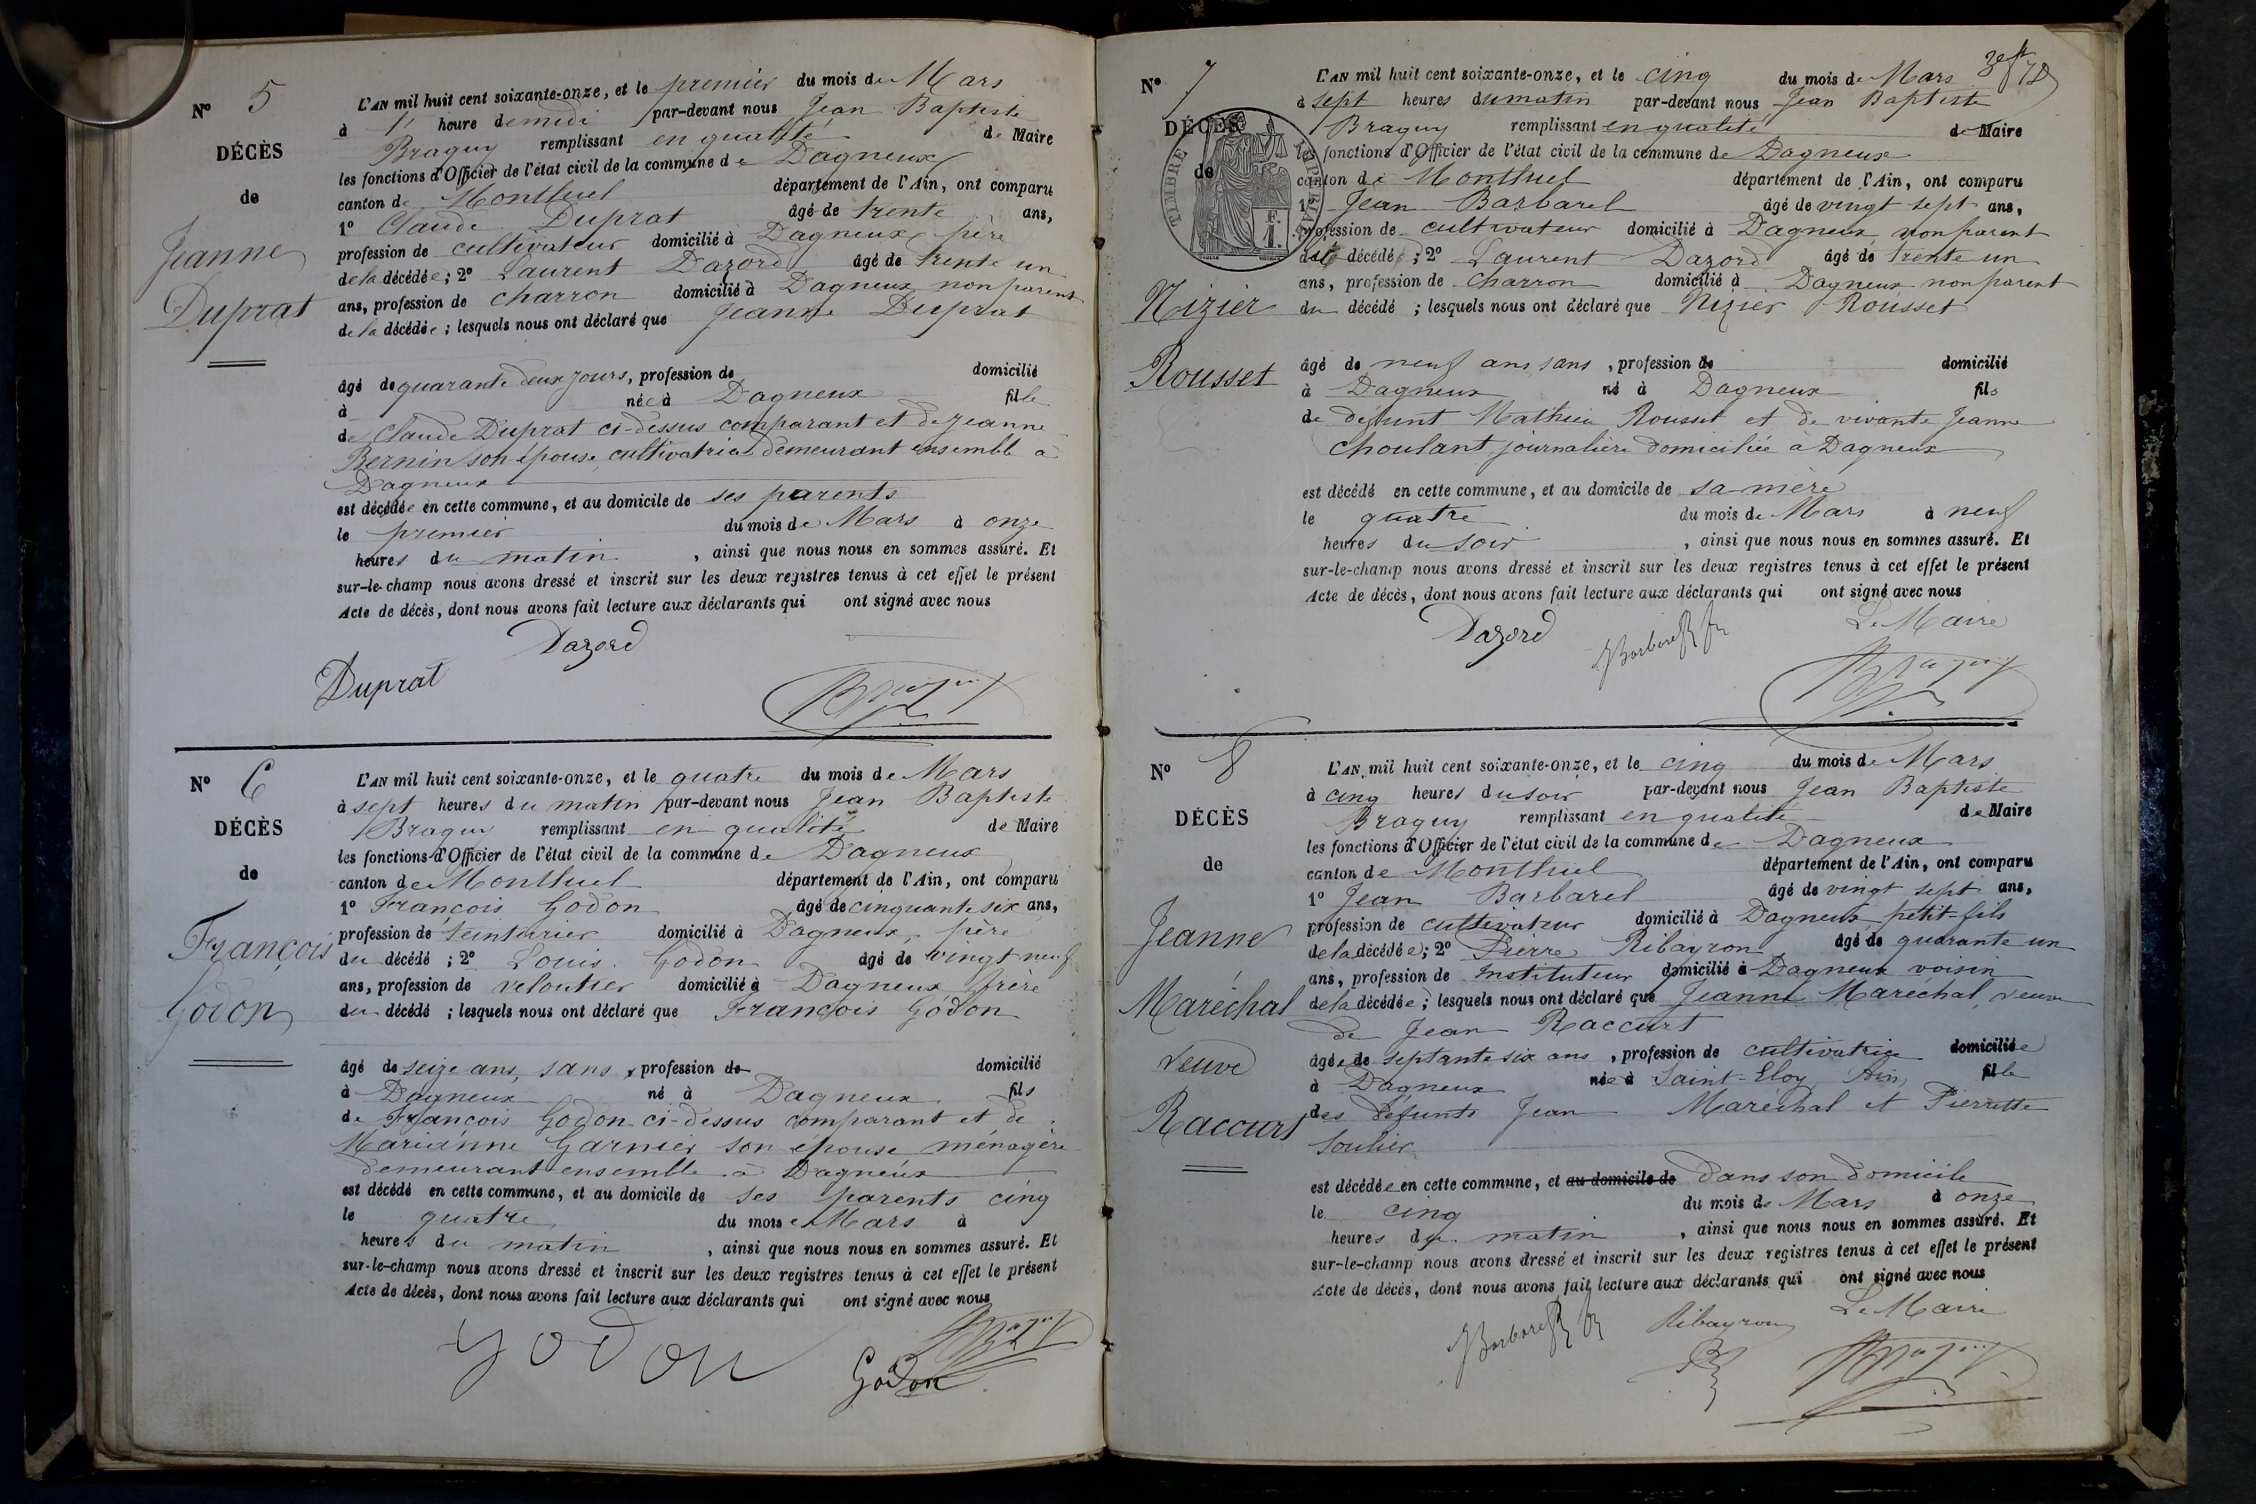 N° 5
DÉCÈS
de
Jeanne
Duprat
L'AN mil huit cent soixante-onze, et le premier du mois de Mars
à heure de midi par-devant nous Jean Baptiste
Braguy remplissant en qualité de Maire
les fonctions d'Officier de l'état civil de la commune de Dagneux
canton de Montluel département de l'Ain, ont comparu
1° Claude Duprat âgé de trente ans,
profession de cultivateur domicilié à Dagneux, père
de la décédée ; 2° Laurent Dazord âgé de trente un
ans, profession de charron domicilié à Dagneux non parent
de la décédée ; lesquels nous ont déclaré que Jeanne Duprat
âgé de quarante deux jours, profession de domicilié
à née à Dagneux fille
de Claude Duprat ci-dessus comparant et de Jeanne
Bernin son épouse, cultivatrice demeurant ensemble à
Dagneux
est décédée en cette commune, et au domicile de ses parents
le premier du mois de Mars à onze
heures du matin, ainsi que nous nous en sommes assuré. Et
sur-le-champ nous avons dressé et inscrit sur les deux registres tenus à cet effet le présent
Acte de décès, dont nous avons fait lecture aux déclarants qui ont signé avec nous
Dazord
Duprat
Braguy
N° 6
DÉCÈS
de
François
Godon
L'AN mil huit cent soixante-onze, et le quatre du mois de Mars
à sept heures du matin par-devant nous Jean Baptiste
Braguy remplissant en qualité de Maire
les fonctions d'Officier de l'état civil de la commune de Dagneux
canton de Montluel département de l'Ain, ont comparu
1° François Godon âgé de cinquante six ans,
profession de teinturier domicilié à Dagneux, père
du décédé ; 2° Louis Godon âgé de vingt neuf
ans, profession de veloutier domicilié à Dagneux frère
du décédé ; lesquels nous ont déclaré que François Godon
âgé de seize ans, sans, profession de domicilié
à Dagneux né à Dagneux fils
de François Godon ci-dessus comparant et de
Marianne Garnier son épouse ménagère
demeurant ensemble à Dagneux
est décédé en cette commune, et au domicile de ses parents cinq
le quatre du mois de Mars à
heures du matin, ainsi que nous nous en sommes assuré. Et
sur-le-champ nous avons dressé et inscrit sur les deux registres tenus à cet effet le présent
Acte de décès, dont nous avons fait lecture aux déclarants qui ont signé avec nous
Braguy
godon
Godon
N° 7
DÉCÈS
de
TIMBRE IMPERIAL
F. 1.
Nizier
Rousset
L'AN mil huit cent soixante-onze, et le cinq du mois de Mars
à sept heures du matin par-devant nous Jean Baptiste
Braguy remplissant en qualité de Maire
les fonctions d'Officier de l'état civil de la commune de Dagneux
canton de Montluel département de l'Ain, ont comparu
1° Jean Barbarel âgé de vingt sept ans,
profession de cultivateur domicilié à Dagneux non parent
du décédé ; 2° Laurent Dazord âgé de trente un
ans, profession de charron domicilié à Dagneux non parent
du décédé ; lesquels nous ont déclaré que Nizier Rousset
âgé de neuf ans sans, profession de domicilié
à Dagneux né à Dagneux fils
de défunt Mathieu Rousset et de vivante Jeanne
Choulant, journalière domiciliée à Dagneux
est décédé en cette commune, et au domicile de sa mère
le quatre du mois de Mars à neuf
heures du soir, ainsi que nous nous en sommes assuré. Et
sur-le-champ nous avons dressé et inscrit sur les deux registres tenus à cet effet le présent
Acte de décès, dont nous avons fait lecture aux déclarants qui ont signé avec nous
Le Maire
Dazord
Barbarel
Braguy
N° 8
DÉCÈS
de
Jeanne
Maréchal
veuve
Raccurt
L'AN mil huit cent soixante-onze, et le cinq du mois de Mars
à cinq heures du soir par-devant nous Jean Baptiste
Braguy remplissant en qualité de Maire
les fonctions d'Officier de l'état civil de la commune de Dagneux
canton de Montluel département de l'Ain, ont comparu
1° Jean Barbarel âgé de vingt sept ans,
profession de cultivateur domicilié à Dagneux petit-fils
de la décédée ; 2° Pierre Ribayron âgé de quarante un
ans, profession de instituteur domicilié à Dagneux voisin
de la décédée ; lesquels nous ont déclaré que Jeanne Maréchal, veuve
de Jean Raccurt
âgée de septante six ans, profession de cultivatrice domiciliée
à Dagneux née à Saint-Eloy, Ain, fille
des défunts Jean Maréchal et Pierrette
Soulier
est décédée en cette commune, et au domicile de dans son domicile
le cinq du mois de Mars à onze
heures du matin, ainsi que nous nous en sommes assuré. Et
sur-le-champ nous avons dressé et inscrit sur les deux registres tenus à cet effet le présent
Acte de décès, dont nous avons fait lecture aux déclarants qui ont signé avec nous
Le Maire
Barbarel
Ribayron
Braguy